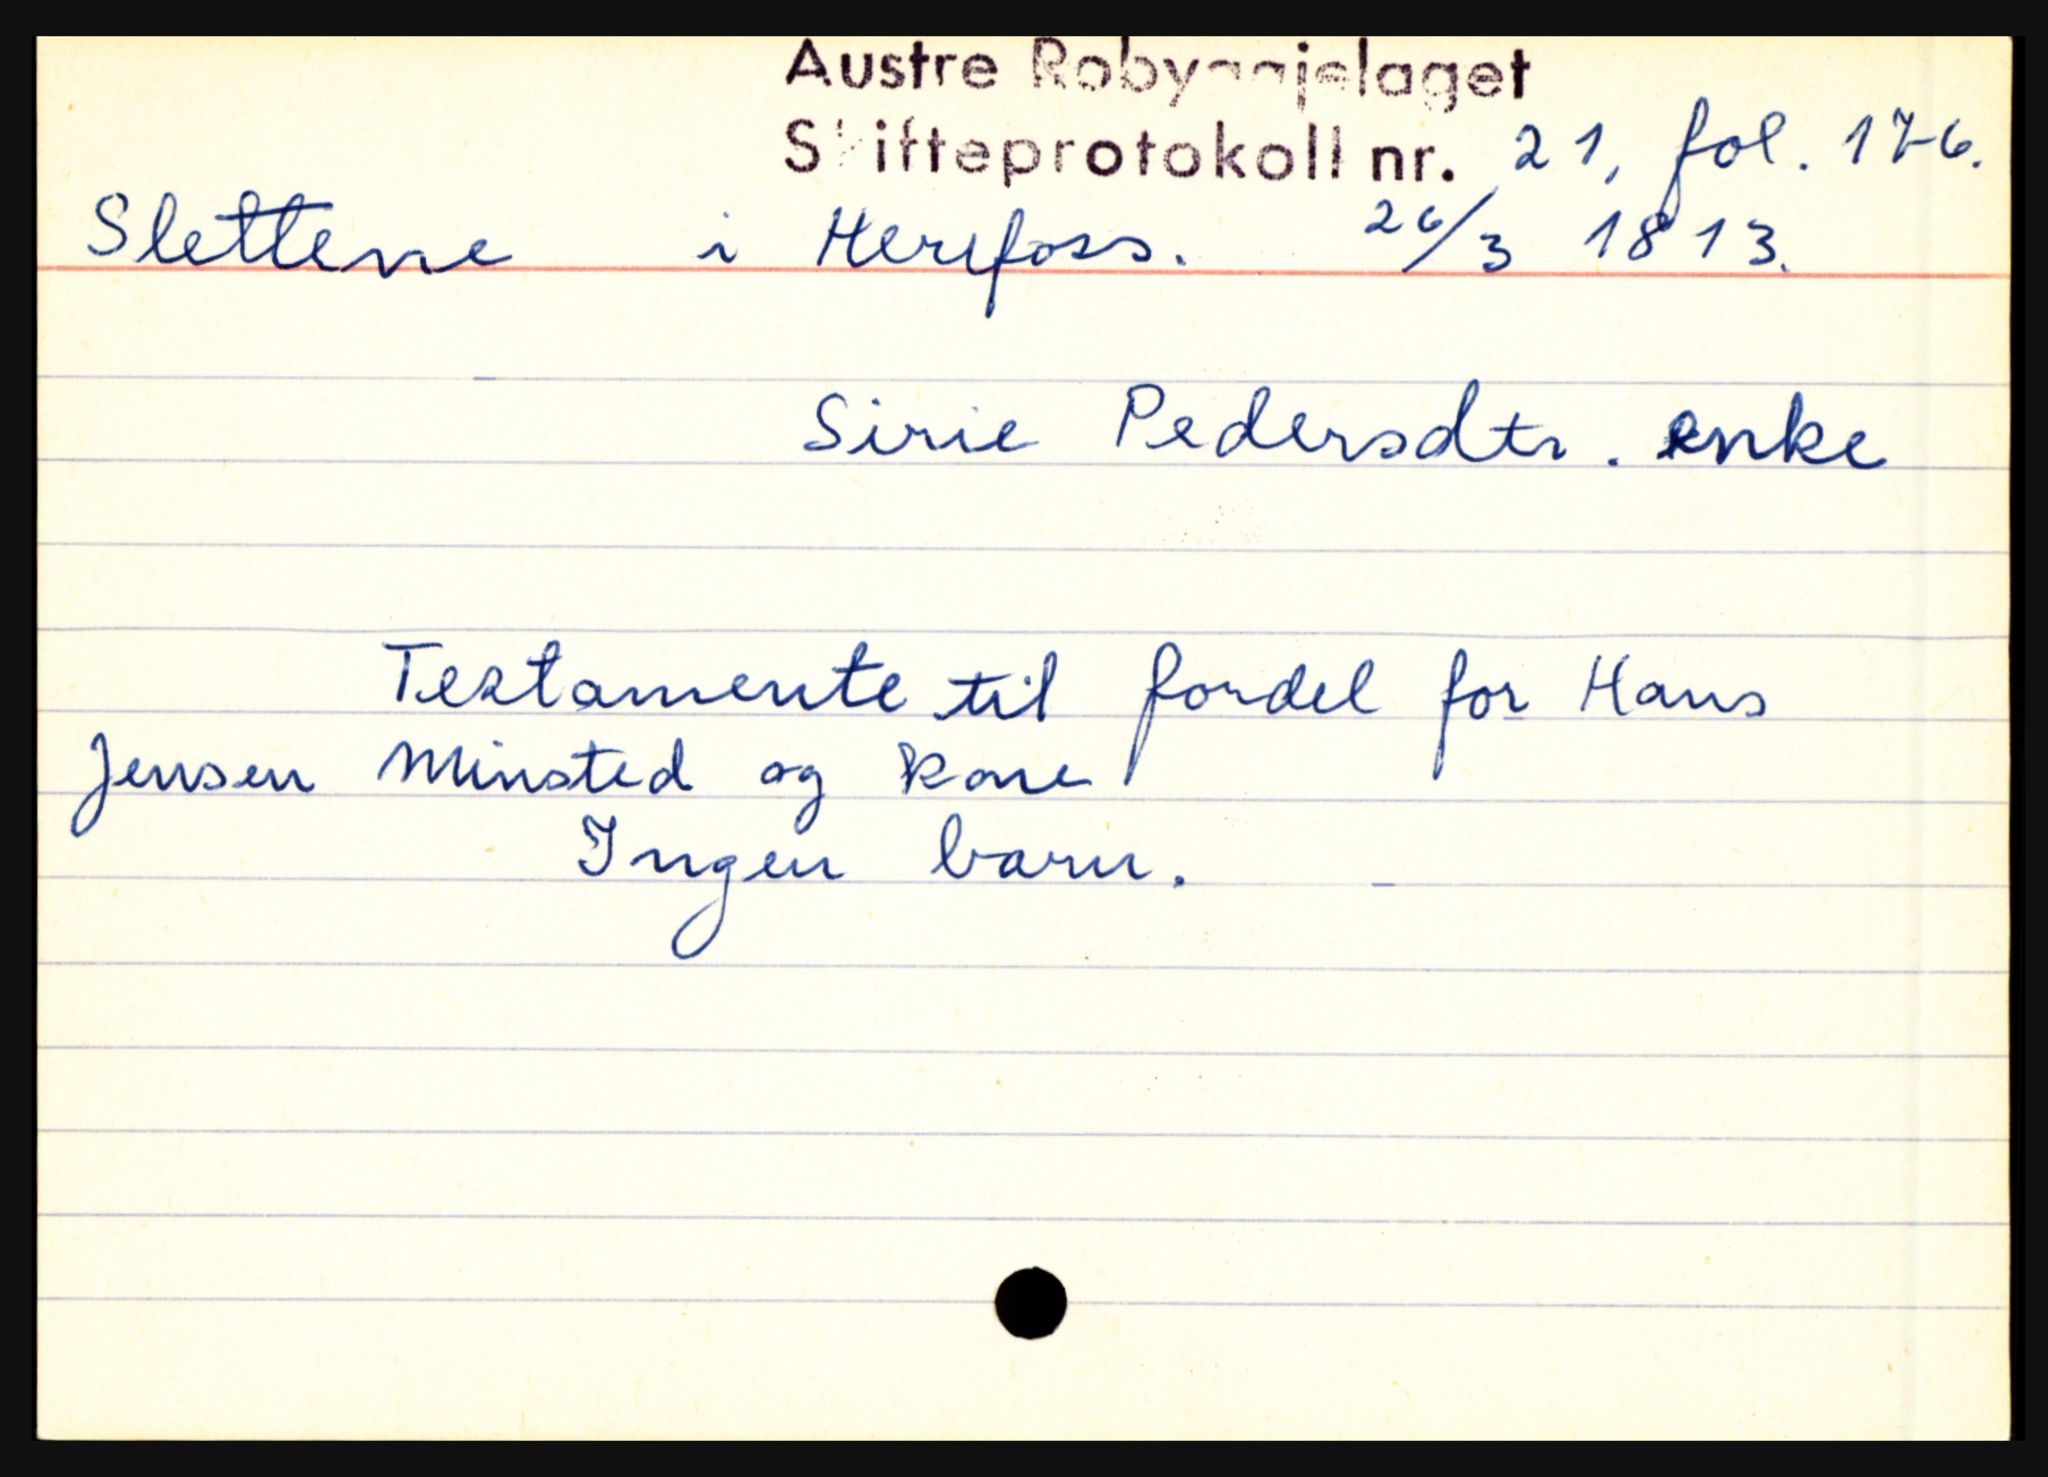 Austre Robyggjelaget
Skifteprotokoll nr. 21, fol. 176.
Slettene i Herefoss. 26/3 1813.
Sirie Pedersdtr. enke
Testamente til fordel for Hans
Jensen Minsted og kone
Ingen barn.